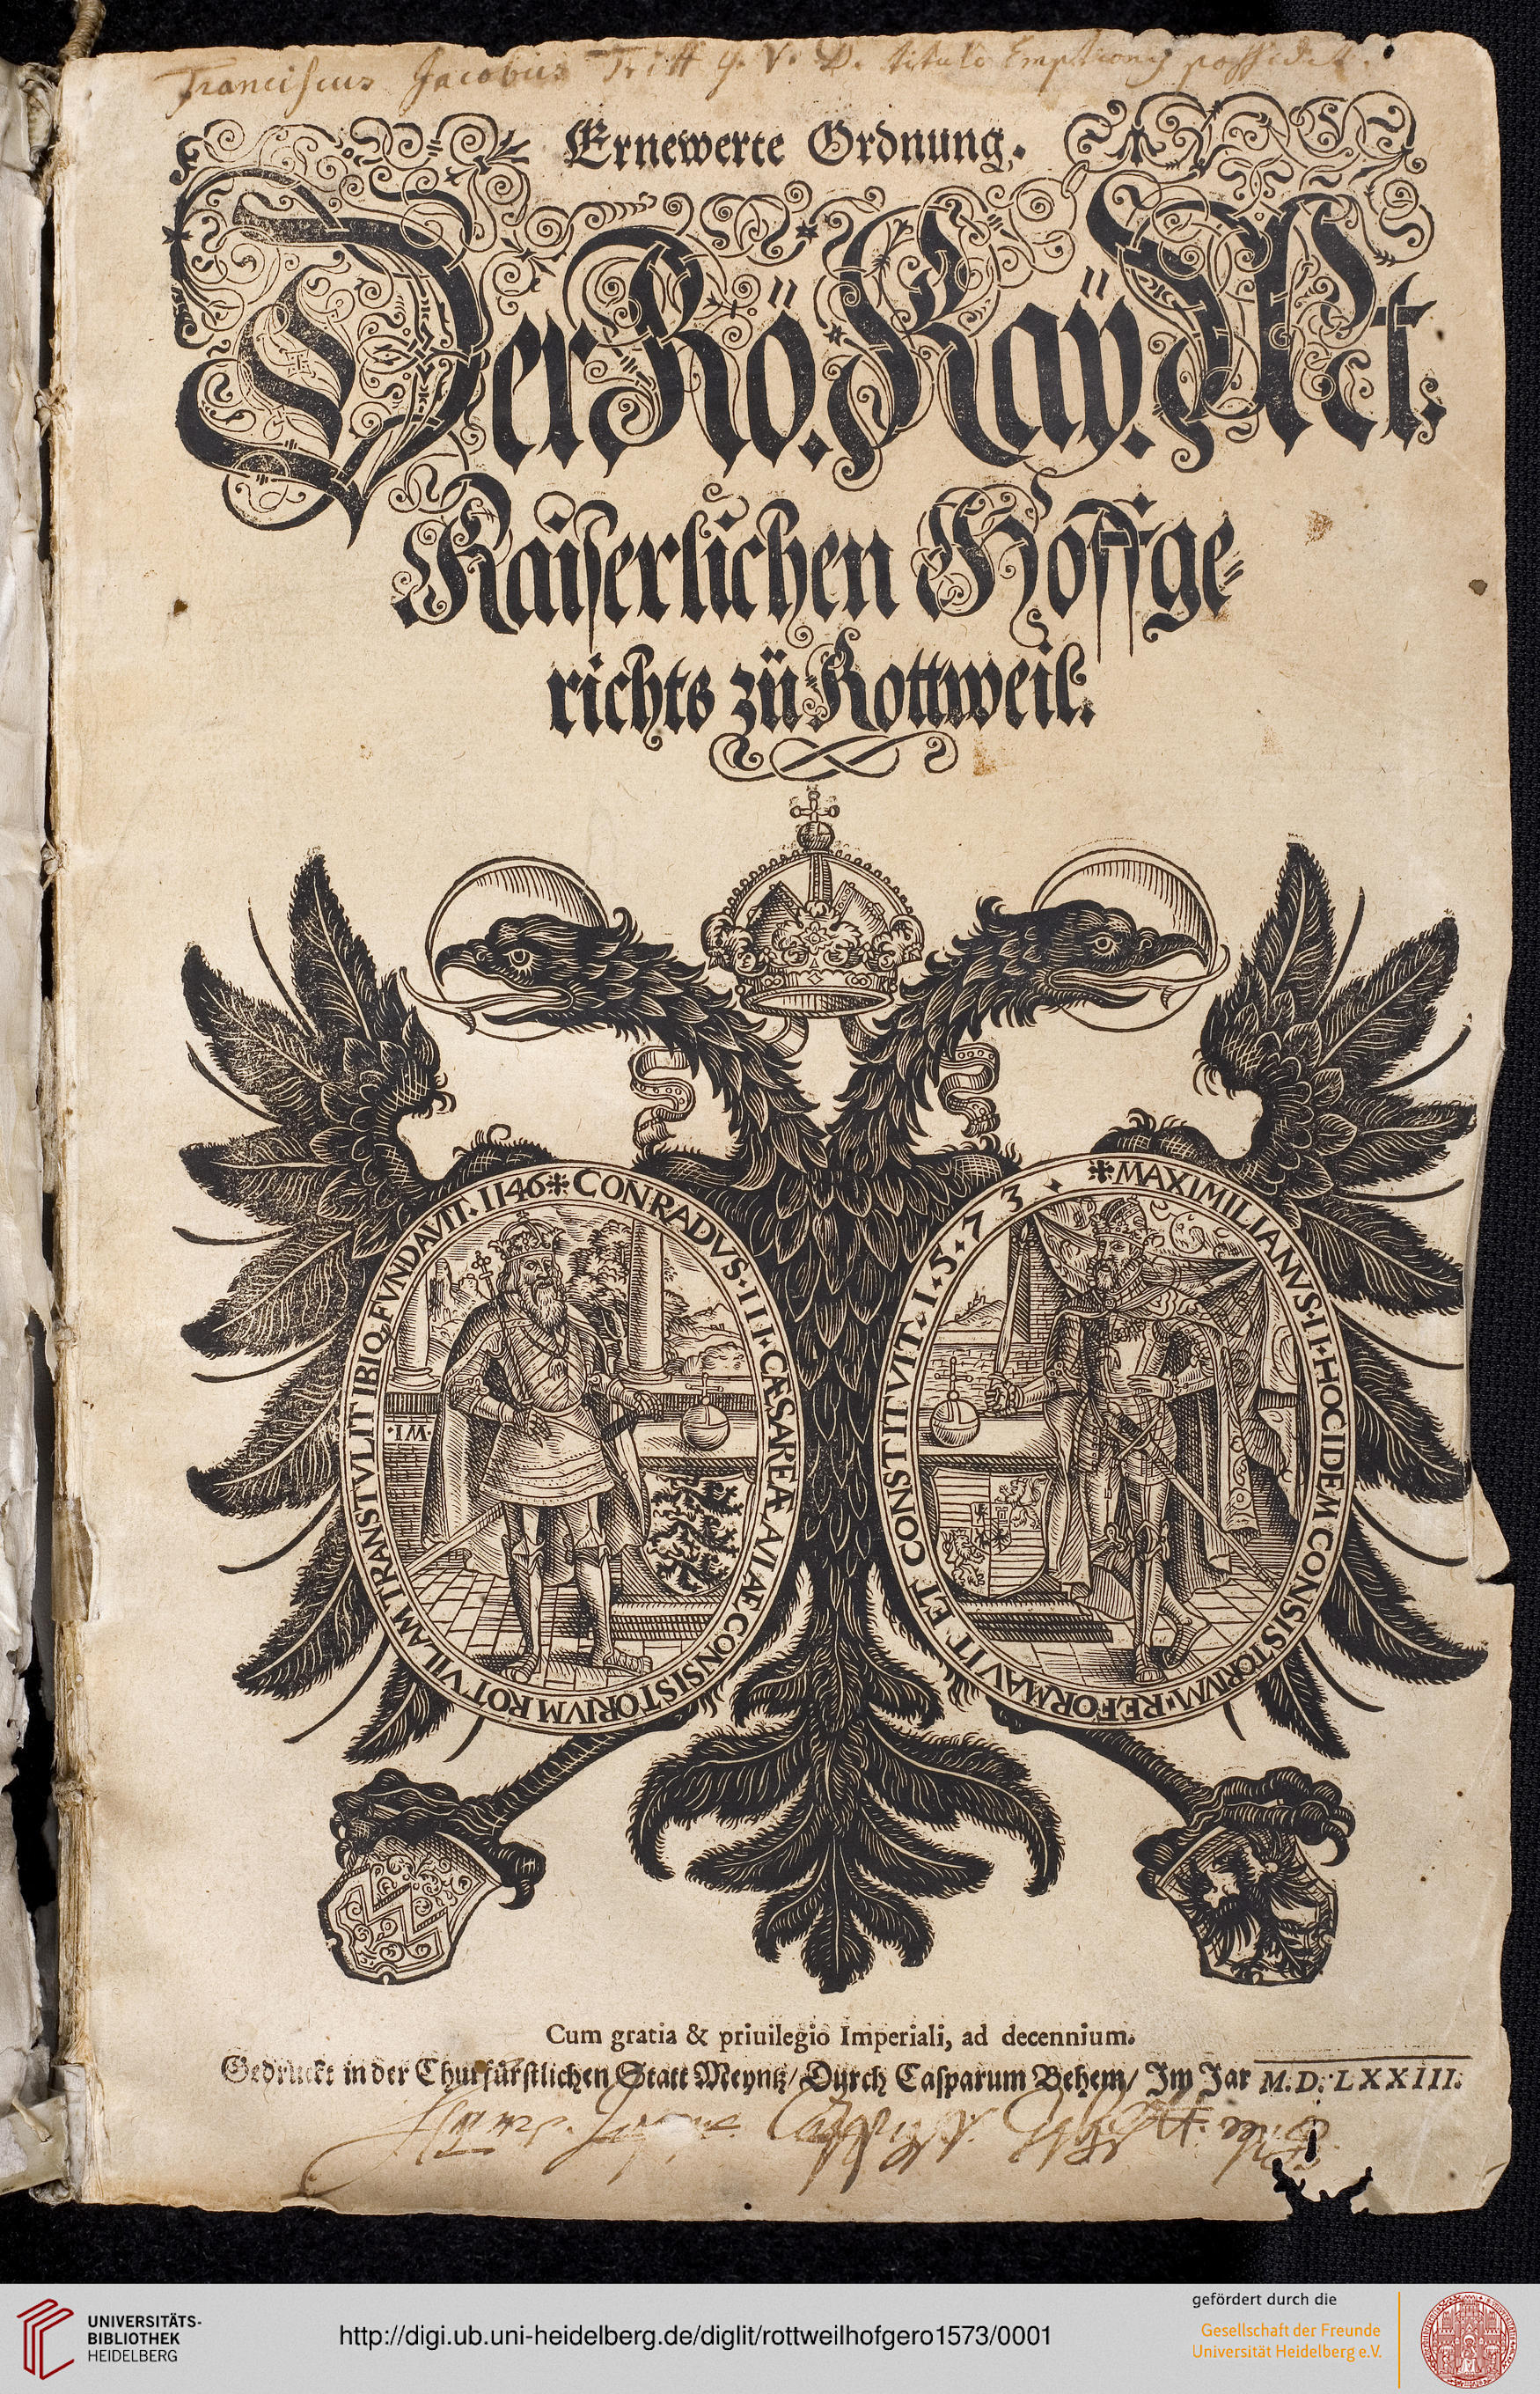 Franciscus Jacobus Tritt J. V. D. titulo Emptionis possidet.
Ernewerte Ordnung.
Der Rö. Kaÿ. Mt.
Kaiserlichen Hoffge⸗
richts zü Rottweil.
CONRADVS·III·CÆSAREA AVLAE CONSISTORIVM ROTVILAM TRANSTVLIT IBIQ. FVNDAVIT. 1146
·WI·
MAXIMILIANVS·II·HOC IDEM CONSISTORIVM·REFORMAVIT ET CONSTITVIT·1·5·7·3·
Cum gratia & priuilegio Imperiali, ad decennium.
Gedruckt in der Churfürstlichen Statt Meyntz/ Durch Casparum Behem/ Im Jar M.D.LXXIII.
UNIVERSITÄTS-
BIBLIOTHEK
HEIDELBERG
http://digi.ub.uni-heidelberg.de/diglit/rottweilhofgero1573/0001
gefördert durch die
Gesellschaft der Freunde
Universität Heidelberg e.V.